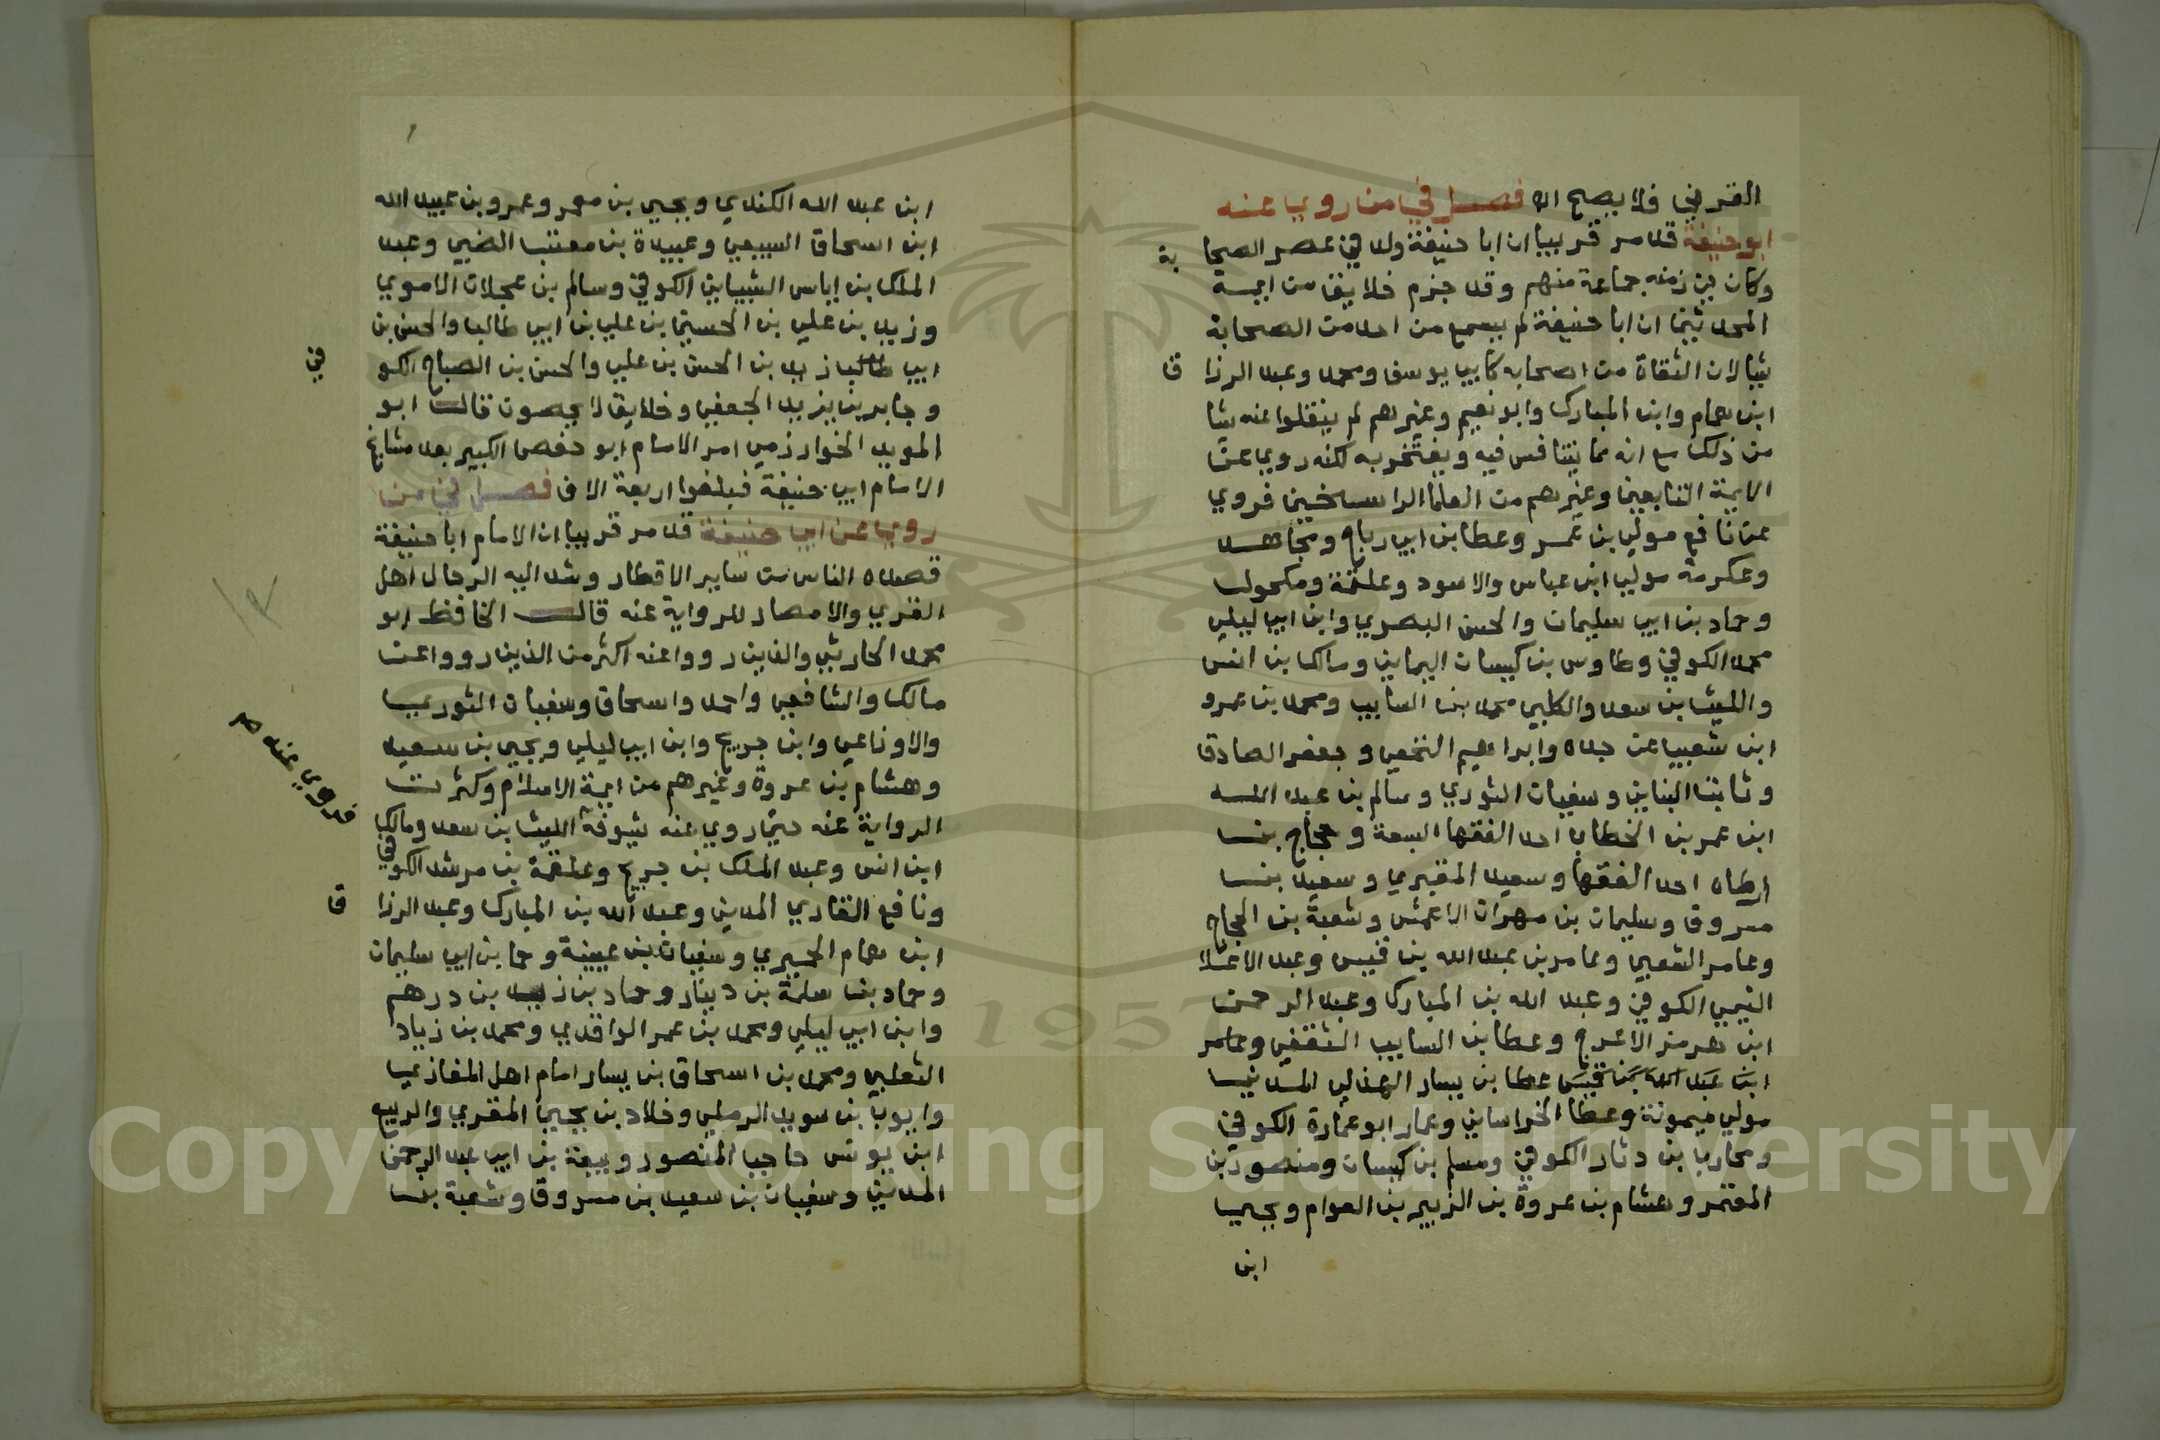 القرني فلا يصح اه فصل في من روي عنه
ابو حنيفة قد مر قريبا ان ابا حنيفة ولد في عصر الصحا بة
وكان في زمنه جماعة منهم وقد جزم خلايق من ايمة
المحدثين ان ابا حنيفة لم يسمع من احد من الصحابة
شيا لان الثقاة من اصحابه كابي يوسف ومحمد وعبد الرزا ق
ابن همام وابن المبارك وابو نعيم وغيرهم لم ينقلوا عنه شيا
من ذلك مع انه مما يتنافس فيه ويفتخر به لكنه روي عن
الايمة التابعين وغيرهم من العلما الراسخين فروي
عن نافع مولي بن عمر وعطا بن ابي رباح ومجاهد
وعكرمة مولي ابن عباس والاسود وعلقمة ومكحول
وحماد بن ابي سليمان والحسن البصري وابن ابي ليلي
محمد الكوفي وطاوس بن كيسان اليماني ومالك بن انس
والليث بن سعد والكلبي محمد بن السايب ومحمد بن عمرو
ابن شعيب عن جده وابراهيم النخعي وجعفر الصادق
وثابت البناني وسفيان الثوري وسالم بن عبد الله
ابن عمر بن الخطاب احد الفقها السبعة وحجاج بن
ارطاه احد الفقها وسعيد المقبري وسعيد بن
مسروق وسليمان بن مهران الاعمش وشعبة بن الحجاج
وعامر الشعبي وعامر بن عبد الله بن قيس وعبد الاعلا
التيمي الكوفي وعبد الله بن المبارك وعبد الرحمن
ابن هرمز الاعرج وعطا بن السايب الثقفي وعامر
ابن عبد الله بن قيس عطا بن يسار الهذلي المدني
مولي ميمونة وعطا الخراساني وعمار ابو عمارة الكوفي
ومحارب بن دثار الكوفي ومسلم بن كيسان ومنصور بن
المعتمر وهشام بن عروة بن الزبير بن العوام ويحيي
ابن
ابن عبد الله الكندي ويحيي بن معمر وعمرو بن عبيد الله
ابن اسحاق السبيعي وعبيدة بن معتب الضبي وعبد
الملك بن اياس الشيباني الكوفي وسالم بن عجلان الاموي
وزيد بن علي بن الحسين بن علي بن ابي طالب والحسن بن
ابي طالب زيد بن الحسن بن علي والحسن بن الصباح الكو في
وجابر بن يزيد الجعفي وخلايق لا يحصون قال ابو
المويد الخوارزمي امر الامام ابو حفص الكبير بعد مشايخ
الامام ابي حنيفة فبلغوا اربعة الاف فصل في من
روي عن ابي حنيفة قد مر قريبا ان الامام ابا حنيفة
قصده الناس من ساير الاقطار وشد اليه الرحال اهل
القري والامصار للرواية عنه قال الحافظ ابو
محمد الحارثي والذين رووا عنه اكثر من الذين رووا عن
مالك والشافعي واحمد واسحاق وسفيان الثوري
والاوزاعي وابن جريج وابن ابي ليلي ويحيي بن سعيد
وهشام بن عروة وغيرهم من ايمة الاسلام وكثرت
الرواية عنه حتي روي عنه شيوخه الليث بن سعد ومالك
فروي عنه
ابن انس وعبد الملك بن جريج وعلقمة بن مرشد الكوفي
ونافع القاري المدني وعبد الله بن المبارك وعبد الرزا ق
ابن همام الحميري وسفيان بن عيينة وحما بن ابي سليمان
وحماد بن سلمة بن دينار وحماد بن زيد بن درهم
وابن ابي ليلي ومحمد بن عمر الواقدي ومحمد بن زياد
الثعلبي ومحمد بن اسحاق بن يسار امام اهل المغازي
وايوب بن سويد الرملي وخلاد بن يحيي المقري والربيع
ابن يونس حاجب المنصور وربيعة بن ابي عبد الرحمن
المدني وسفيان بن سعيد بن مسروق وشعبة بن
Copyright © King Saud University
1957